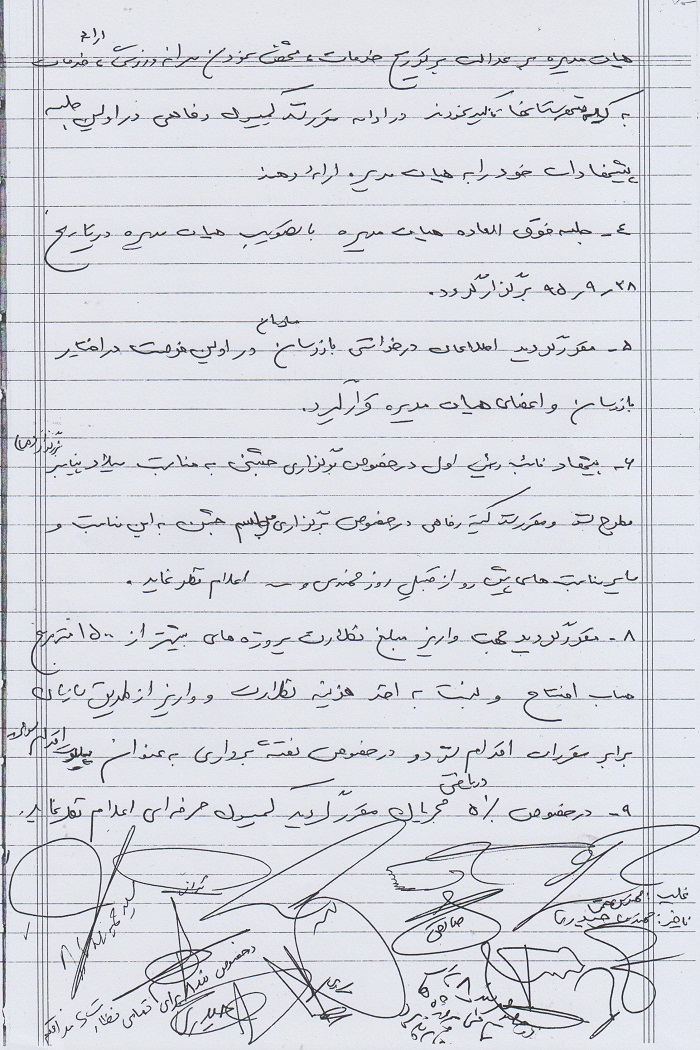 ارائه
هیات مدیره بر عدالت بر توزیع خدمات، محقق نمودن سرانه ورزشی، خدمات
به کلیه شهرستانها تاکید نمودند در ادامه مقرر شد کمیسیون رفاهی در اولین جلسه
پیشنهادات خود را به هیات مدیره ارائه دهند
۴- جلسه فوق العاده هیات مدیره با تصویب هیات مدیره در تاریخ
۲۸ر۹ر۹۵ برگزار گردد.
۵- مقرر گردید اطلاعات درخواستی بازرسان سازمان در اولین فرصت در اختیار
بازرسان و اعضای هیات مدیره قرار گیرد.
۶- پیشنهاد نائب رئیس اول در خصوص برگزاری جشنی به مناسبت میلاد پیامبر
مطرح شد و مقرر شد کمیته رفاهی در خصوص برگزاری مراسم جشن به این مناسبت و
سایر مناسبت های پیش رو از قبیل روز مهندسی و ... اعلام نظر نماید.
۸- مقرر گردید جهت واریز مبلغ نظارت پروژه های بیشتر از ۱۵۰۰ مترمربع
حساب افتتاح و نسبت به اخذ هزینه نظارت و واریز از طریق سازمان
برابر مقررات اقدام شود و در خصوص نقشه برداری به عنوان پایلوت اقدام
۹- در خصوص ۵٪ دریافتی مجریان مقرر گردید کمیسیون حرفه ای اعلام نظر نماید.
غایب: مهندس
تاخیر: مهندس حیدری
صالحی
حیدری
در خصوص بند ۸ برای تمامی
در خصوص بند ۸